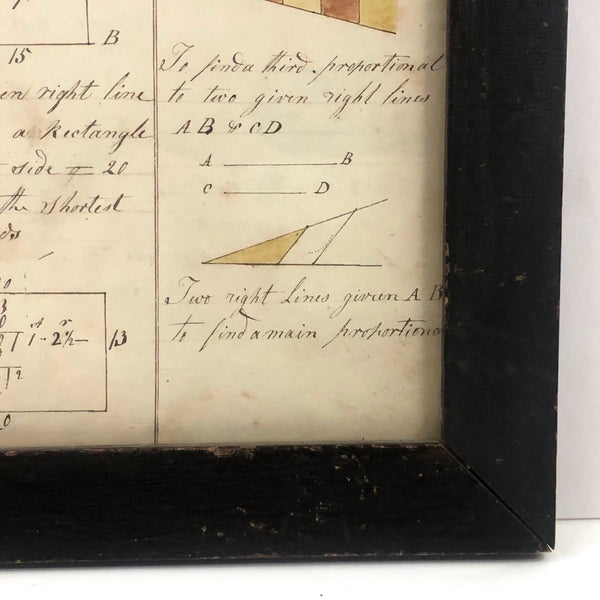 B
15
en right line
a Rectangle
side = 20
the shortest
13
1 - 2½
13
2
0
To find a third proportional
to two given right lines
AB & CD
A B
C D
Two right Lines given AB
to find a main proportiona